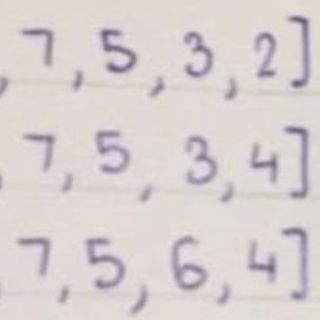 , 7, 5, 3, 2]
, 7, 5, 3, 4]
, 7, 5, 6, 4]